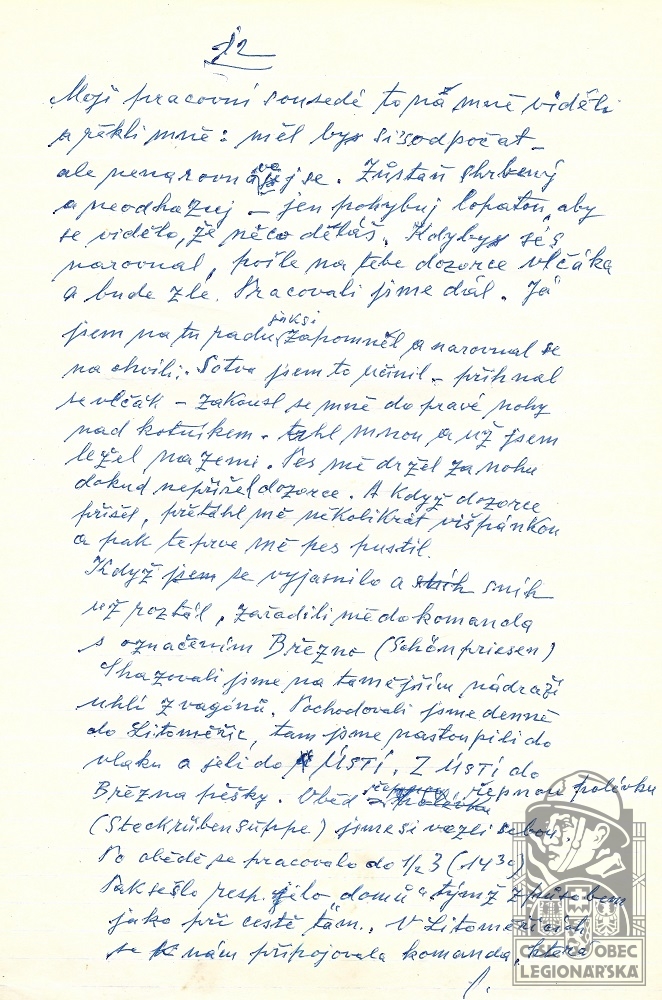 12
Moji pracovní sousedé to na mně viděli
a řekli mně: měl bys si odpočat –
ale nenarovnávej se. Zůstaň shrbený
a neodhazuj – jen pohybuj lopatou, aby
se vidělo, že něco děláš. Kdybys ses
narovnal, pošle na tebe dozorce vlčáka
a bude zle. Pracovali jsme dál. Já
jsem na tu radu jaksi zapomněl a narovnal se
na chvíli. Sotva jsem to učinil – přihnal
se vlčák – zakousl se mně do pravé nohy
nad kotníkem – trhl mnou a už jsem
ležel na zemi. Pes mě držel za nohu
dokud nepřišel dozorce. A když dozorce
přišel, přetáhl mě několikrát višpánkou
a pak teprve mě pes pustil.
Když jsem se vyjasnilo a sníh
už roztál, zařadili mě do komanda
s označením Březno (Schönpriesen)
Shazovali jsme na tamějším nádraží
uhlí z vagónů. Pochodovali jsme denně
do Litoměřic, tam jsme nastoupili do
vlaku a jeli do ÚSTÍ. Z ÚSTÍ do
Března pěšky. Oběd řepnou polévku
(Steckrübensuppe) jsme si vezli sebou.
Po obědě se pracovalo do 1/2 3 (14 30)
Pak se šlo resp. jelo "domů" týmž způsobem
jako při cestě tam. V Litoměřicích
se k nám připojovala komanda, která
/.
ČESKÁ OBEC
LEGIONÁŘSKÁ